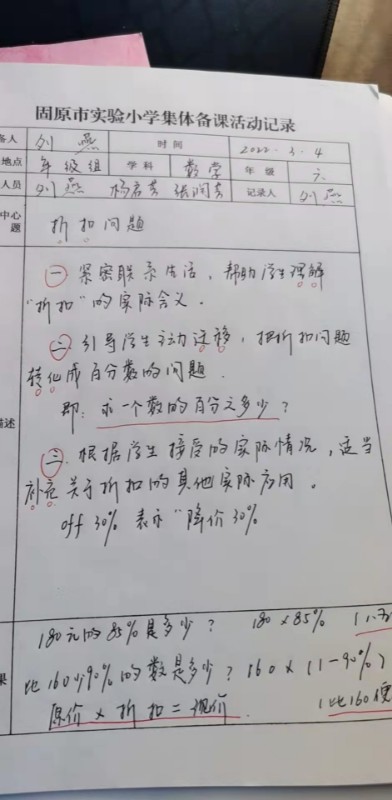 固原市实验小学集体备课活动记录
备人 刘燕 时间 2022.3.4
地点 年级组 学科 数学 年级 六
人员 刘燕 杨 张润 记录人 刘燕
中心题 折扣问题
㊀ 紧密联系生活，帮助学生理解
“折扣”的实际含义．
㊁ 引导学生主动迁移，把折扣问题
转化成百分数的问题．
即：求一个数的百分之多少？
㊂．根据学生接受的实际情况，适当
补充关于折扣的其他实际应用。
述
off 30% 表示“降价30%
180元的85%是多少？ 180×85%
比160少90%的数是多少？160×(1-90%)
果
原价×折扣=现价 (比160便